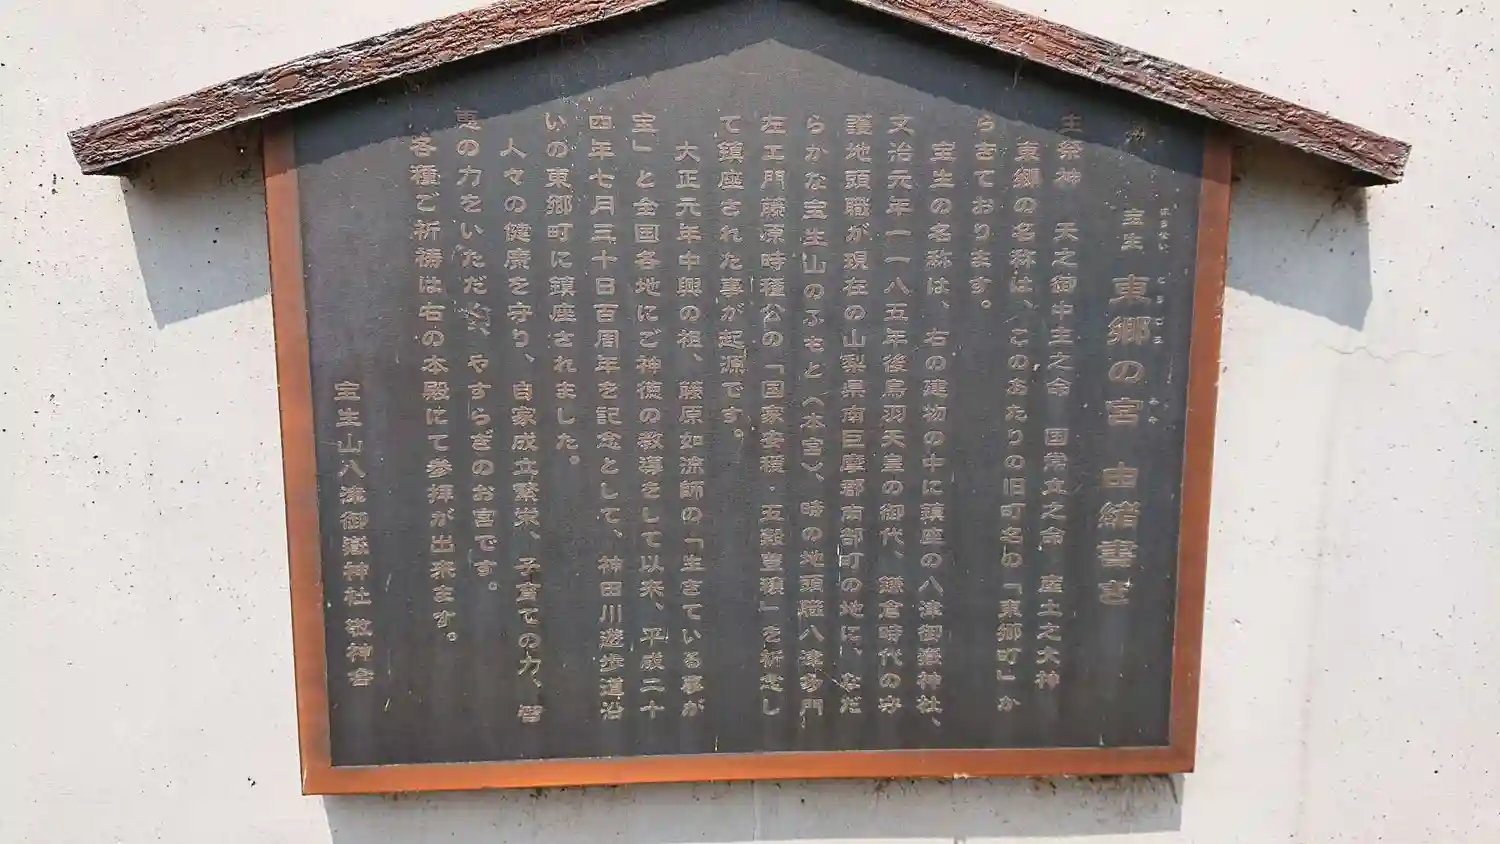 宝生 東郷の宮 由緒書き
主祭神 天之御中主之命 国常立之命 産土之大神
東郷の名称は、このあたりの旧町名の「東郷町」か
らきております。
宝生の名称は、右の建物の中に鎮座の八津御嶽神社、
文治元年一一八五年後鳥羽天皇の御代、鎌倉時代の守
護地頭職が現在の山梨県南巨摩郡南部町の地に、なだ
らかな宝生山のふもとへ本宮〉、時の地頭職八津多門
左エ門藤原時種公の「国家安穏・五穀豊穣」を祈念し
て鎮座された事が起源です。
大正元年中興の祖、藤原如流師の「生きている事が
宝」と全国各地にご神徳の教導をして以来、平成二十
四年七月三十日百周年を記念として、神田川遊歩道沿
いの東郷町に鎮座されました。
人々の健康を守り、自家成立繁栄、子育ての力、智
恵の力をいただき、やすらぎのお宮です。
各種ご祈祷は右の本殿にて参拝が出来ます。
宝生山八津御嶽神社敬神会